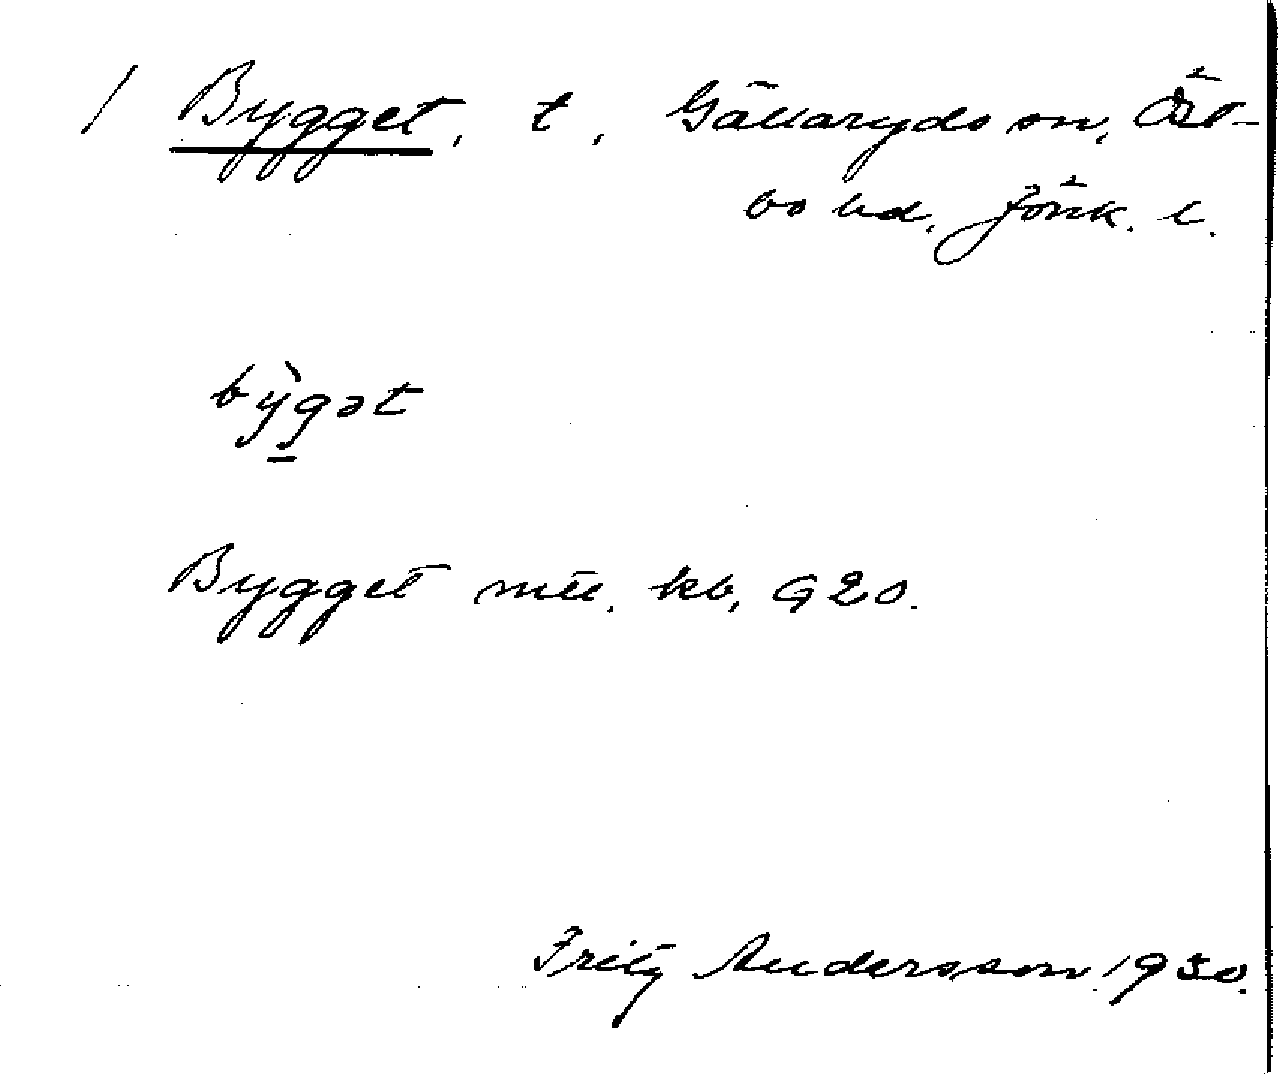 / Bygget, t, Gällaryds sn, Öst-
bo hd, Jönk. l.
bỳgət
Bygget mtl. kb, 920.
Fritz Andersson 1930.